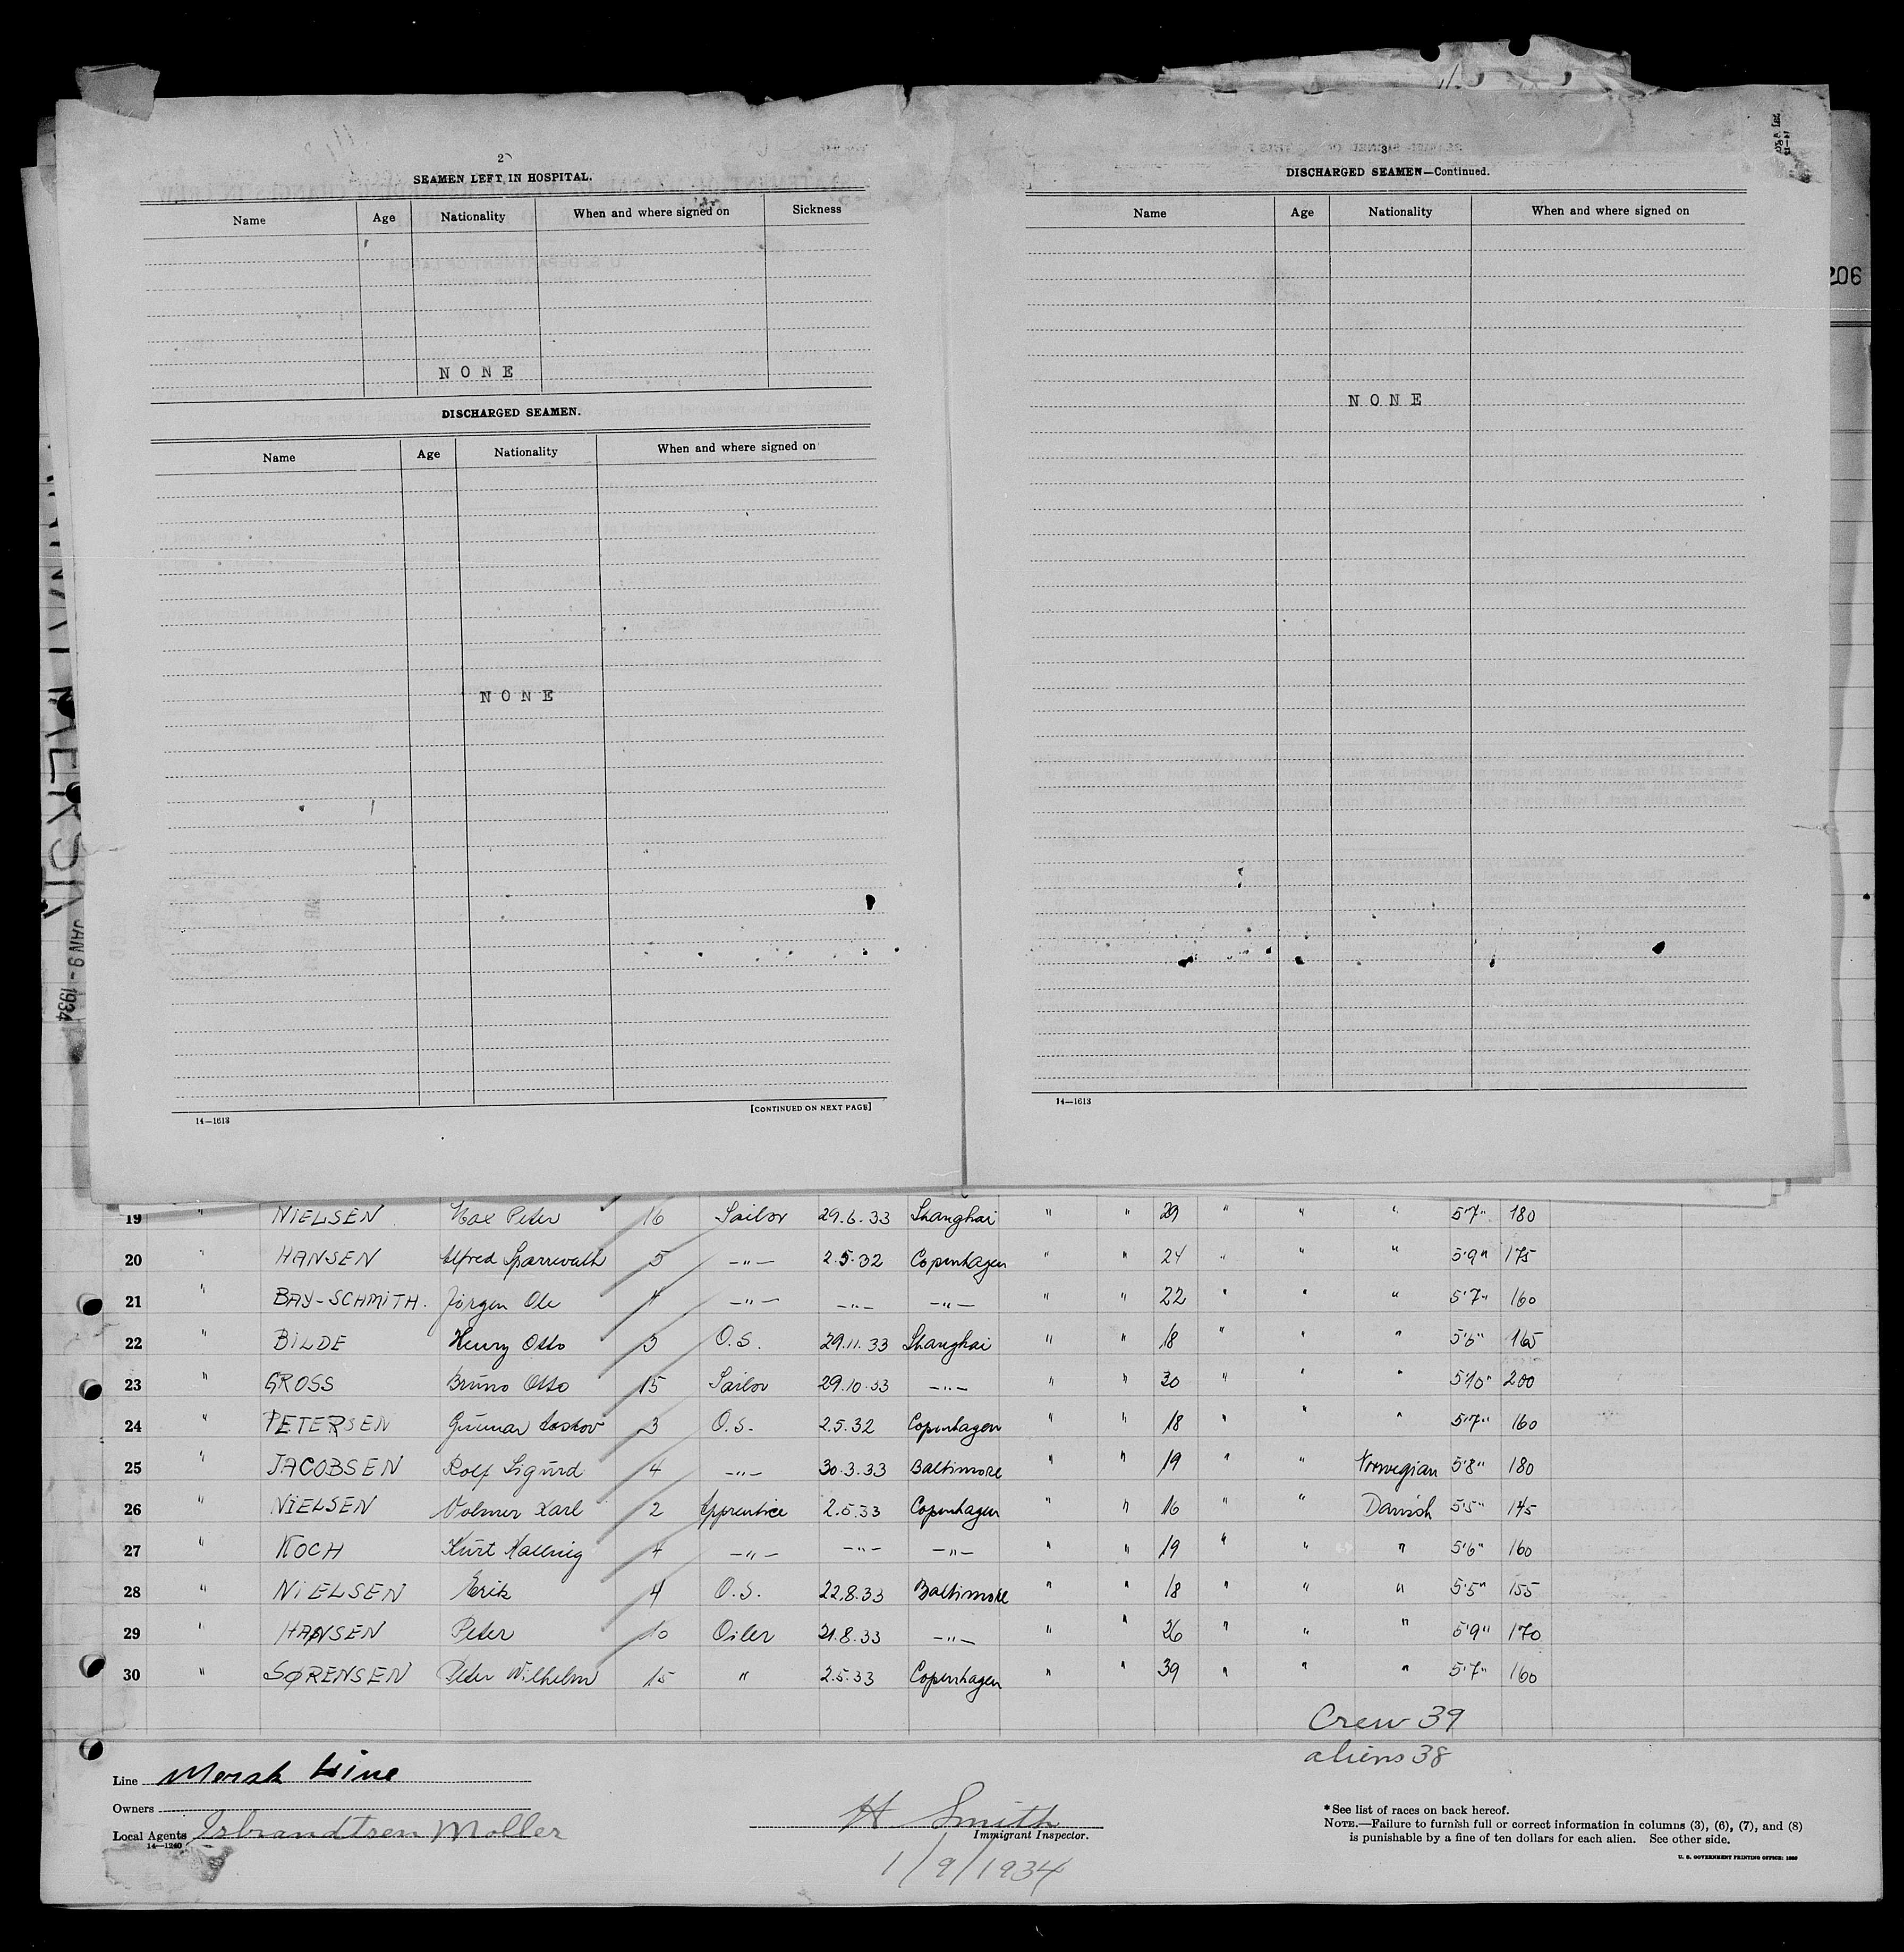 2
SEAMEN LEFT IN HOSPITAL.
Name Age Nationality When and where signed on Sickness
NONE
DISCHARGED SEAMEN.
Name Age Nationality When and where signed on
NONE
14—1613 [CONTINUED ON NEXT PAGE]
3
DISCHARGED SEAMEN—Continued.
Name Age Nationality When and where signed on
NONE
14—1613
206
JAN 9 - 1934
19 " NIELSEN Max Peter 16 Sailor 29.6.33 Shanghai " " 29 " " " 5'7" 180
20 " HANSEN Alfred 5 —"— 2.5.32 Copenhagen " " 24 " " " 5'9" 175
21 " BAY-SCHMITH. Jörgen Ole 4 —"— —"— —"— " " 22 " " " 5'7" 160
22 " BILDE Henry Otto 3 O.S. 29.11.33 Shanghai " " 18 " " " 5'6" 165
23 " GROSS Bruno Otto 15 Sailor 29.10.33 —"— " " 30 " " " 5'10" 200
24 " PETERSEN Gunnar 3 O.S. 2.5.32 Copenhagen " " 18 " " " 5'7" 160
25 " JACOBSEN Rolf Sigurd 4 —"— 30.3.33 Baltimore " " 19 " " Norwegian 5'8" 180
26 " NIELSEN Volmer Karl 2 Apprentice 2.5.33 Copenhagen " " 16 " " Danish 5'5" 145
27 " KOCH Kurt 4 —"— —"— —"— " " 19 " " " 5'6" 160
28 " NIELSEN Erik 4 O.S. 22.8.33 Baltimore " " 18 " " " 5'5" 155
29 " HANSEN Peter 10 Oiler 21.8.33 —"— " " 26 " " " 5'9" 170
30 " SØRENSEN Peter Wilhelm 15 " 2.5.33 Copenhagen " " 39 " " " 5'7" 160
Crew 39
aliens 38
Line Mersk Line
Owners
Local Agents Isbrandtsen Moller
14—1240
H Smith
Immigrant Inspector.
1/9/1934
* See list of races on back hereof.
NOTE.—Failure to furnish full or correct information in columns (3), (6), (7), and (8)
is punishable by a fine of ten dollars for each alien. See other side.
U. S. GOVERNMENT PRINTING OFFICE: 1930